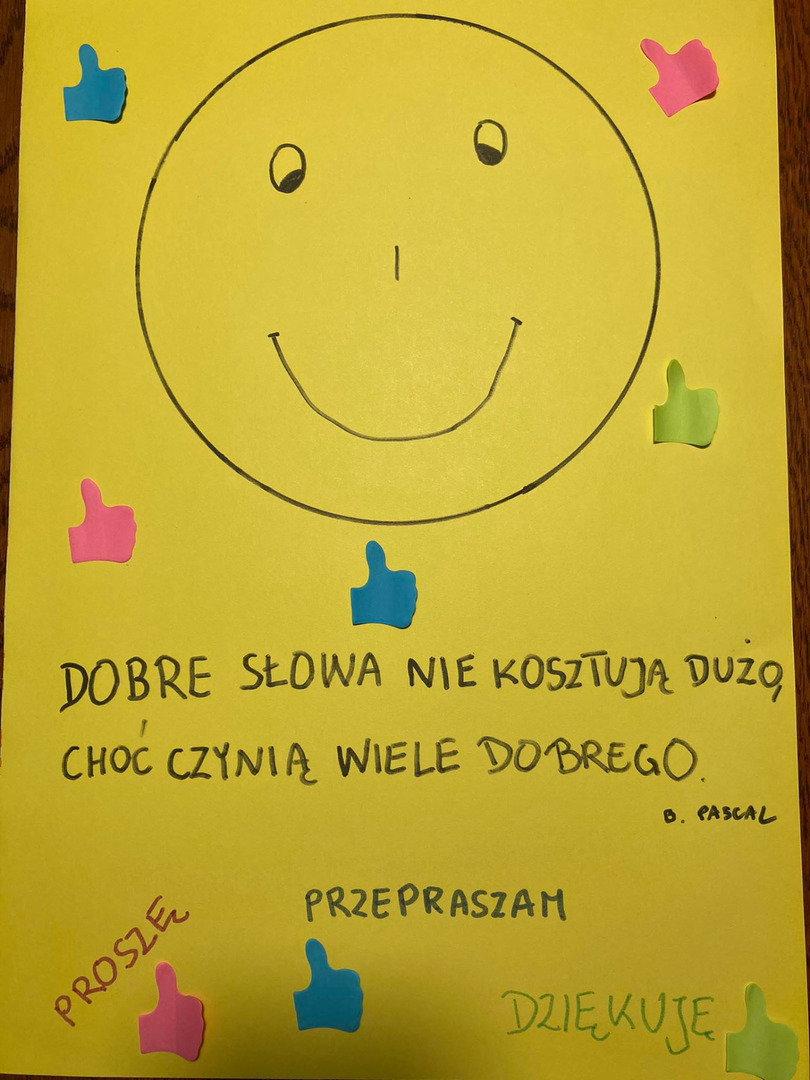 DOBRE SŁOWA NIE KOSZTUJĄ DUŻO,
CHOĆ CZYNIĄ WIELE DOBREGO.
B. PASCAL
PRZEPRASZAM
PROSZĘ
DZIĘKUJĘ